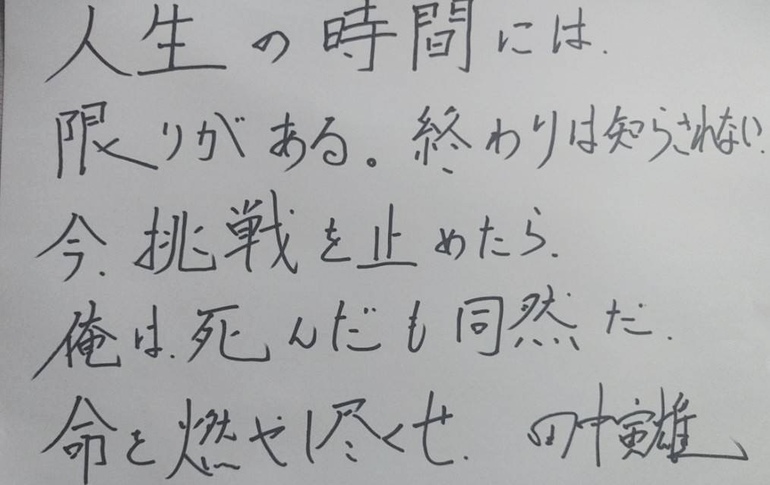 人生の時間には、
限りがある。終わりは知らされない、
今、挑戦を止めたら、
俺は、死んだも同然だ、
命を燃やし尽くせ、 田中寅雄